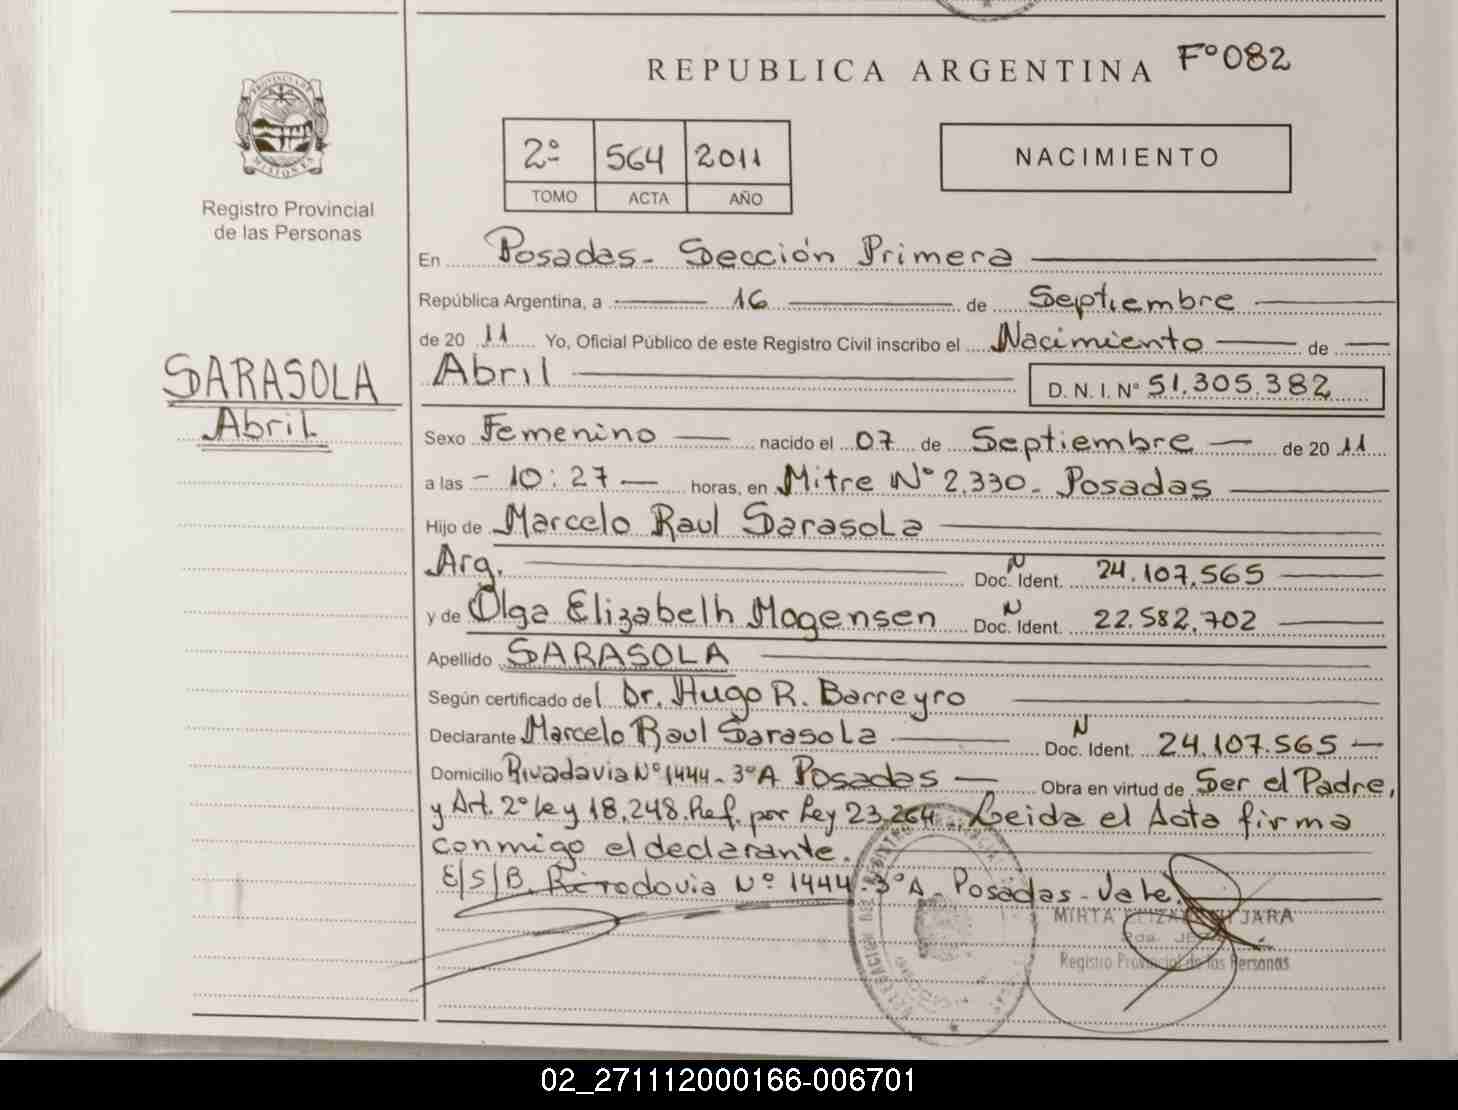 REPUBLICA ARGENTINA Fº082
2º 564 2011
TOMO ACTA AÑO
NACIMIENTO
Registro Provincial
de las Personas
SARASOLA
Abril
En Posadas - Sección Primera
República Argentina, a 16 de Septiembre
de 20 11 Yo, Oficial Público de este Registro Civil inscribo el Nacimiento de
Abril D. N. I. Nº 51.305.382
Sexo Femenino nacido el 07 de Septiembre de 20 11
a las - 10:27 - horas, en Mitre Nº 2.330 - Posadas
Hijo de Marcelo Raul Sarasola
Arg. Doc. Ident. N 24.107.565
y de Olga Elizabeth Mogensen Doc. Ident. N 22.582.702
Apellido SARASOLA
Según certificado del Dr. Hugo R. Barreyro
Declarante Marcelo Raul Sarasola Doc. Ident. N 24.107.565
Domicilio Rivadavia Nº 1444 - 3º A Posadas Obra en virtud de Ser el Padre,
y Art. 2º Ley 18.248. Ref. por Ley 23.264. Leida el Acta firma
conmigo el declarante.
E/S/B. Rivadavia Nº 1444 3º A - Posadas - Vale.
MIRTA JARA
Registro Provincial de las Personas
02_271112000166-006701